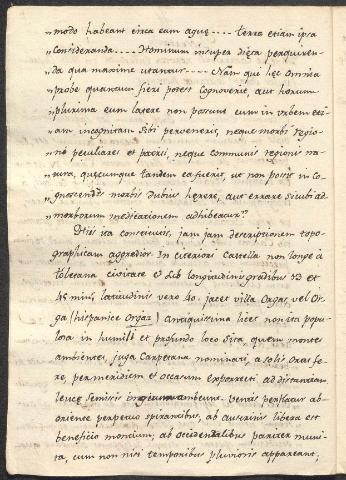 "modo habeant circa eam aguȩ.... terra etiam ipsa
"consideranda.... Hominum insuper diȩta perquiren-
"da qua maxime utantur.... Nam qui hȩc omnia
"probe quantum fieri potest cognoverit, aut horum
"plurima eum latere non possunt eum in urbem eti-
"am incognitam sibi pervenerit, neque morbi regio-
"ni peculiares et patrii, neque communis regionis na-
"tura, quȩcumque tandem ea fuerit, ut non possit in co-
"gnoscendis morbis dubius hȩrere, aut errare si cubi ad
"morborum medicationem adhibeatur."
His ita constitutis, jam jam descriptionem topo-
graphicam aggredior. In citeriori Castella non longe á
toletana civitate et sub longitudinis gradibus 13 et
45 min., latitudinis vero 40. jacet villa Orgas, vel Or-
ga (hispanice Orgaz) antiquissima licet non ita popu-
losa in humili et profundo loco sita quem montes
ambientes, juga Carpetana nominati, a solis ortu fe-
re, per meridiem et occasum exporrecti ad distantiam
leucȩ semissis ambeunt. Ventis perflatur ab
oriente perpetuo spirantibus, ab austrinis libera est
beneficio montium, ab occidentalibus pariter muni-
ta, cum non nisi temporibus pluviosis appareant,